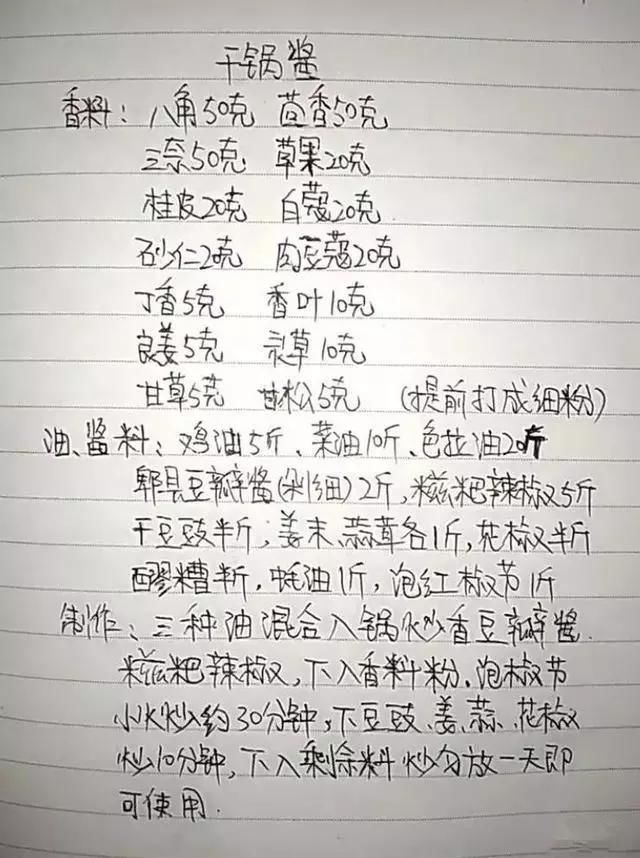 干锅酱
香料：八角50克 茴香50克
三奈50克 草果20克
桂皮20克 白蔻20克
砂仁20克 肉豆蔻20克
丁香5克 香叶10克
良姜5克 灵草10克
甘草5克 甘松5克 (提前打成细粉)
油、酱料：鸡油5斤、菜油10斤、色拉油20斤
郫县豆瓣酱(剁细)2斤，糍粑辣椒5斤
干豆豉半斤；姜末、蒜茸各1斤，花椒半斤
醪糟半斤，蚝油1斤，泡红椒节1斤
制作：三种油混合入锅炒香豆瓣酱.
糍粑辣椒，下入香料粉、泡椒节
小火炒约30分钟，下豆豉、姜、蒜、花椒
炒10分钟，下入剩馀料炒匀放一天即
可使用.